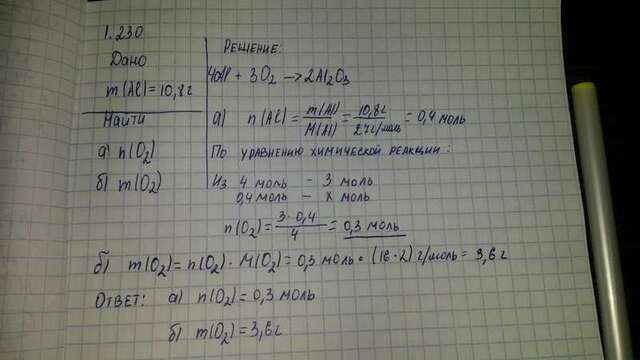 1.230
Дано
m(Al)=10,8г
Найти
а) n(O₂)
б) m(O₂)
Решение:
4Al + 3O₂ → 2Al₂O₃
а) n(Al) = m(Al)/M(Al) = 10,8г/27г/моль = 0,4 моль
По уравнению химической реакции:
Из 4 моль – 3 моль
0,4 моль – x моль
n(O₂) = 3·0,4/4 = 0,3 моль
б) m(O₂) = n(O₂) · M(O₂) = 0,3 моль · (16·2) г/моль = 3,6 г
Ответ: а) n(O₂) = 0,3 моль
б) m(O₂) = 3,6г